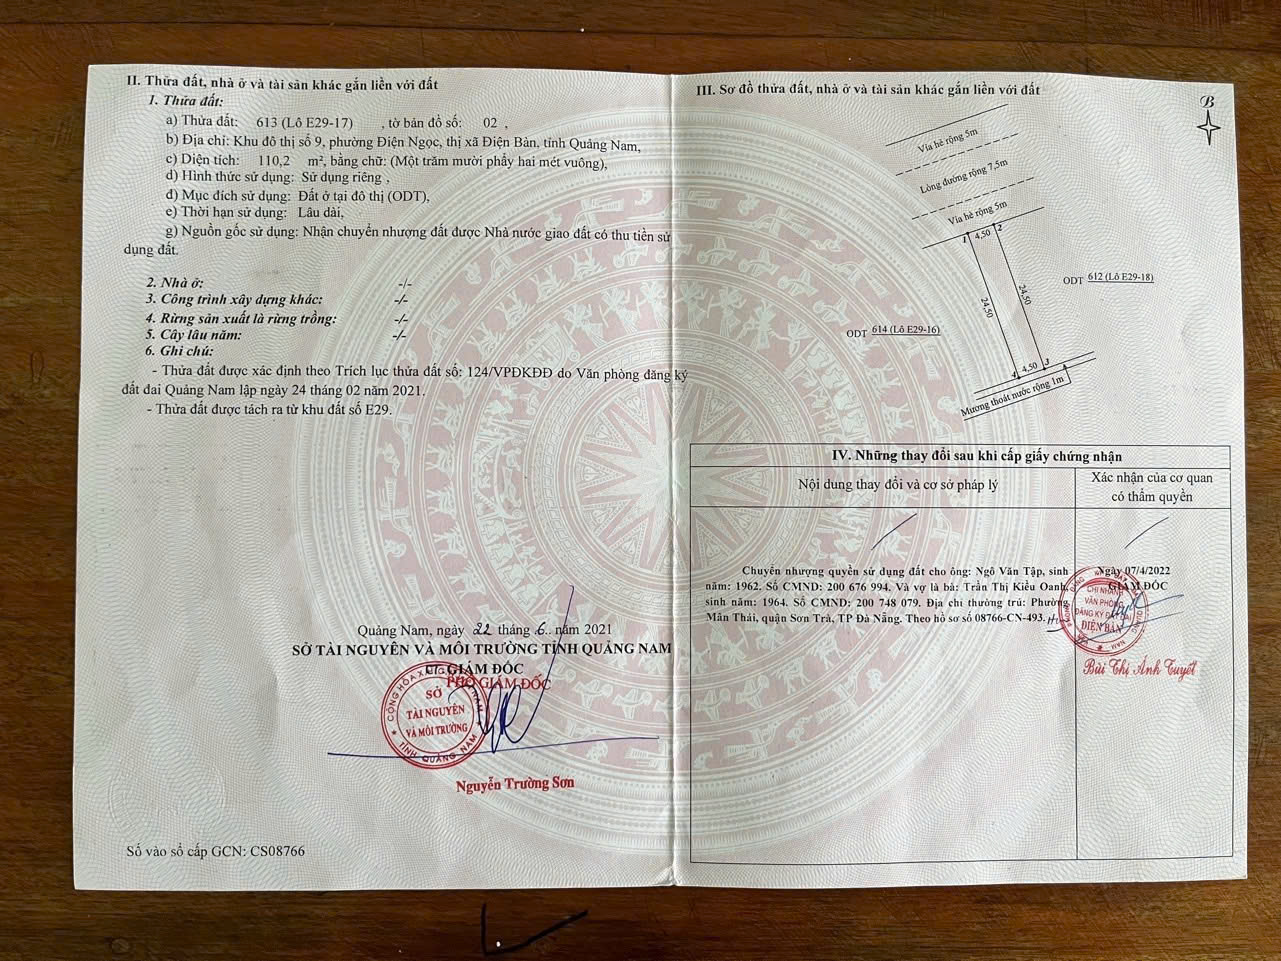 II. Thửa đất, nhà ở và tài sản khác gắn liền với đất
1. Thửa đất:
a) Thửa đất: 613 (Lô E29-17) , tờ bản đồ số: 02 ,
b) Địa chỉ: Khu đô thị số 9, phường Điện Ngọc, thị xã Điện Bàn, tỉnh Quảng Nam,
c) Diện tích: 110,2 m², bằng chữ: (Một trăm mười phẩy hai mét vuông),
d) Hình thức sử dụng: Sử dụng riêng ,
đ) Mục đích sử dụng: Đất ở tại đô thị (ODT),
e) Thời hạn sử dụng: Lâu dài,
g) Nguồn gốc sử dụng: Nhận chuyển nhượng đất được Nhà nước giao đất có thu tiền sử
dụng đất.
2. Nhà ở: -/-
3. Công trình xây dựng khác: -/-
4. Rừng sản xuất là rừng trồng: -/-
5. Cây lâu năm: -/-
6. Ghi chú:
- Thửa đất được xác định theo Trích lục thửa đất số: 124/VPĐKĐĐ do Văn phòng đăng ký
đất đai Quảng Nam lập ngày 24 tháng 02 năm 2021.
- Thửa đất được tách ra từ khu đất số E29.
Quảng Nam, ngày 22 tháng 6 năm 2021
SỞ TÀI NGUYÊN VÀ MÔI TRƯỜNG TỈNH QUẢNG NAM
GIÁM ĐỐC
PHÓ GIÁM ĐỐC
SỞ
TÀI NGUYÊN
VÀ MÔI TRƯỜNG
TỈNH QUẢNG NAM
Nguyễn Trường Sơn
Số vào sổ cấp GCN: CS08766
III. Sơ đồ thửa đất, nhà ở và tài sản khác gắn liền với đất
B
Vỉa hè rộng 5m
Lòng đường rộng 7,5m
Vỉa hè rộng 5m
1 4,50 2
24,50
24,50
ODT 612 (Lô E29-18)
ODT 614 (Lô E29-16)
4 4,50 3
Mương thoát nước rộng 1m
IV. Những thay đổi sau khi cấp giấy chứng nhận
Nội dung thay đổi và cơ sở pháp lý
Xác nhận của cơ quan
có thẩm quyền
Chuyển nhượng quyền sử dụng đất cho ông: Ngô Văn Tập, sinh
năm: 1962. Số CMND: 200 676 994. Và vợ là bà: Trần Thị Kiều Oanh,
sinh năm: 1964. Số CMND: 200 748 079. Địa chỉ thường trú: Phường
Mân Thái, quận Sơn Trà, TP Đà Nẵng. Theo hồ sơ số 08766-CN-493.
Ngày 07/4/2022
GIÁM ĐỐC
CHI NHÁNH
VĂN PHÒNG
ĐĂNG KÝ ĐẤT ĐAI
ĐIỆN BÀN
Bùi Thị Ánh Tuyết